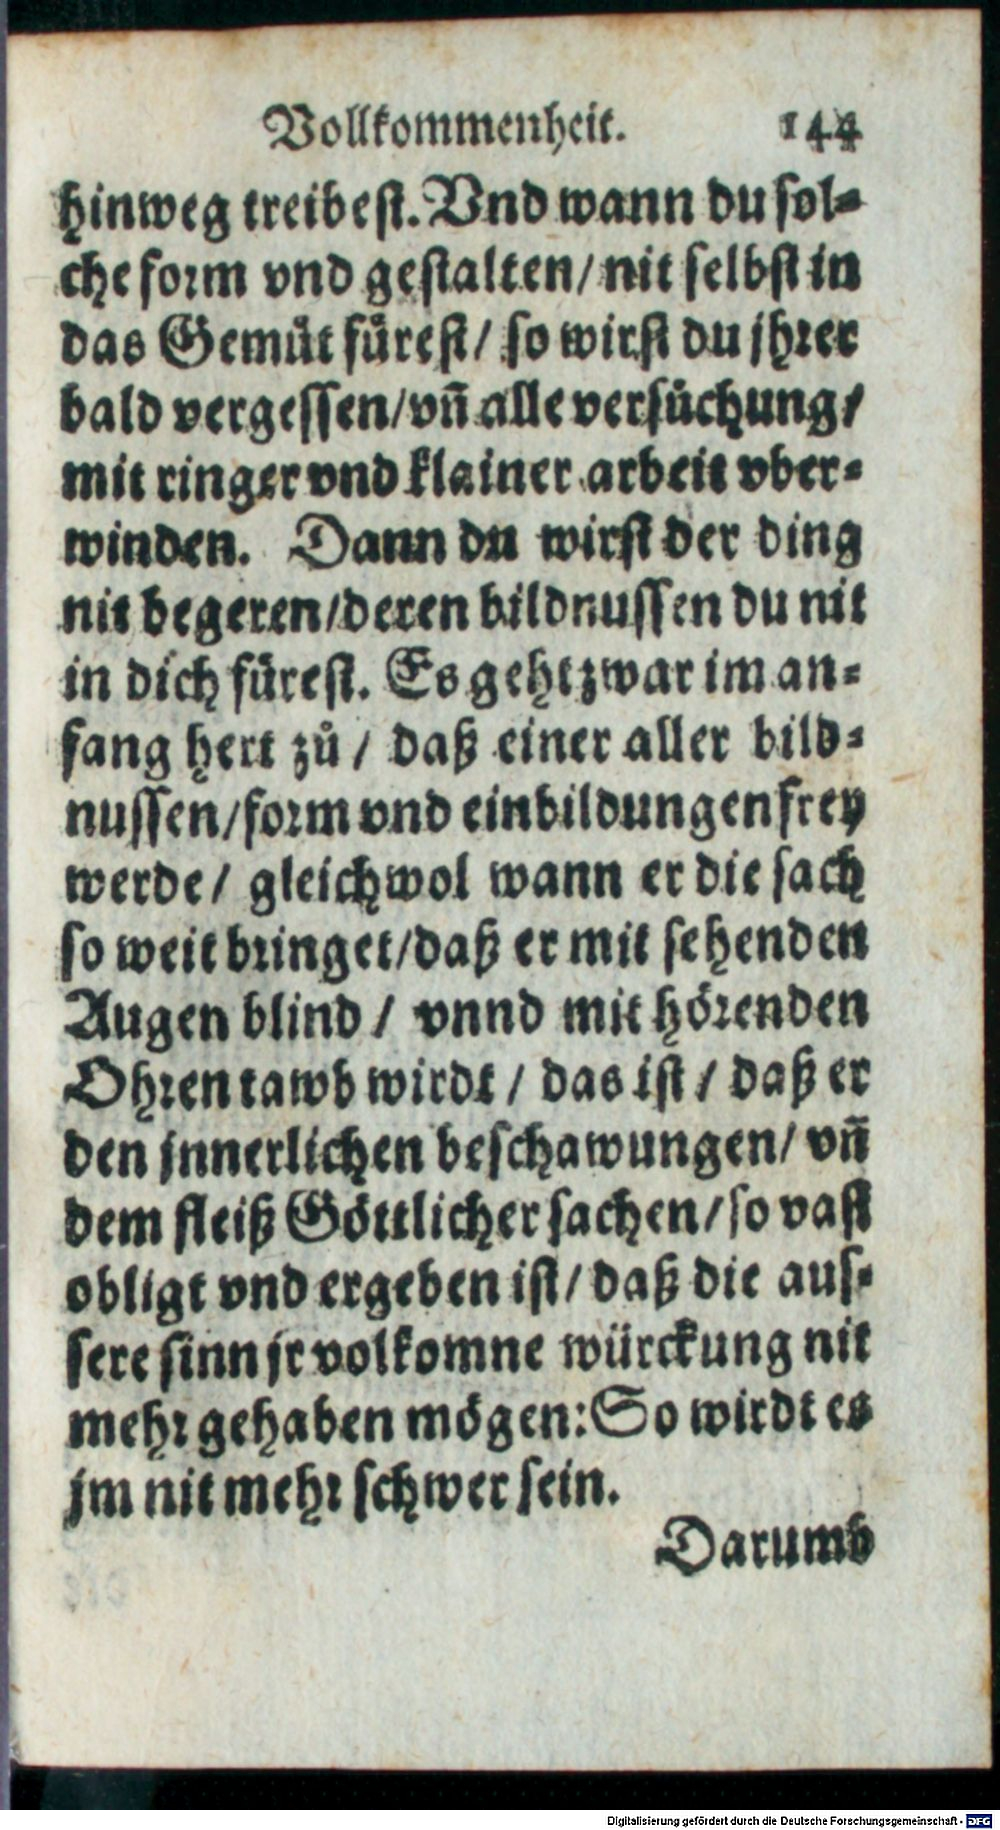 Vollkommenheit. 144
hinweg treibest. Vnd wann du sol-
che form vnd gestalten/ nit selbst in
das Gemüt fürest/ so wirst du jhrer
bald vergessen/ vn̄ alle versůchung/
mit ringer vnd klainer arbeit vber-
winden. Dann du wirst der ding
nit begeren/ deren bildnussen du nit
in dich fürest. Es geht zwar im an-
fang hert zů/ daß einer aller bild-
nussen/ form vnd einbildungen frey
werde/ gleichwol wann er die sach
so weit bringet/ daß er mit sehenden
Augen blind/ vnnd mit hörenden
Ohren tawb wirdt/ das ist/ daß er
den jnnerlichen beschawungen/ vn̄
dem fleiß Göttlicher sachen/ so vast
obligt vnd ergeben ist/ daß die aus-
sere sinn jr volkomne würckung nit
mehr gehaben mögen: So wirdt es
jm nit mehr schwer sein.
Darumb
Digitalisierung gefördert durch die Deutsche Forschungsgemeinschaft - DFG